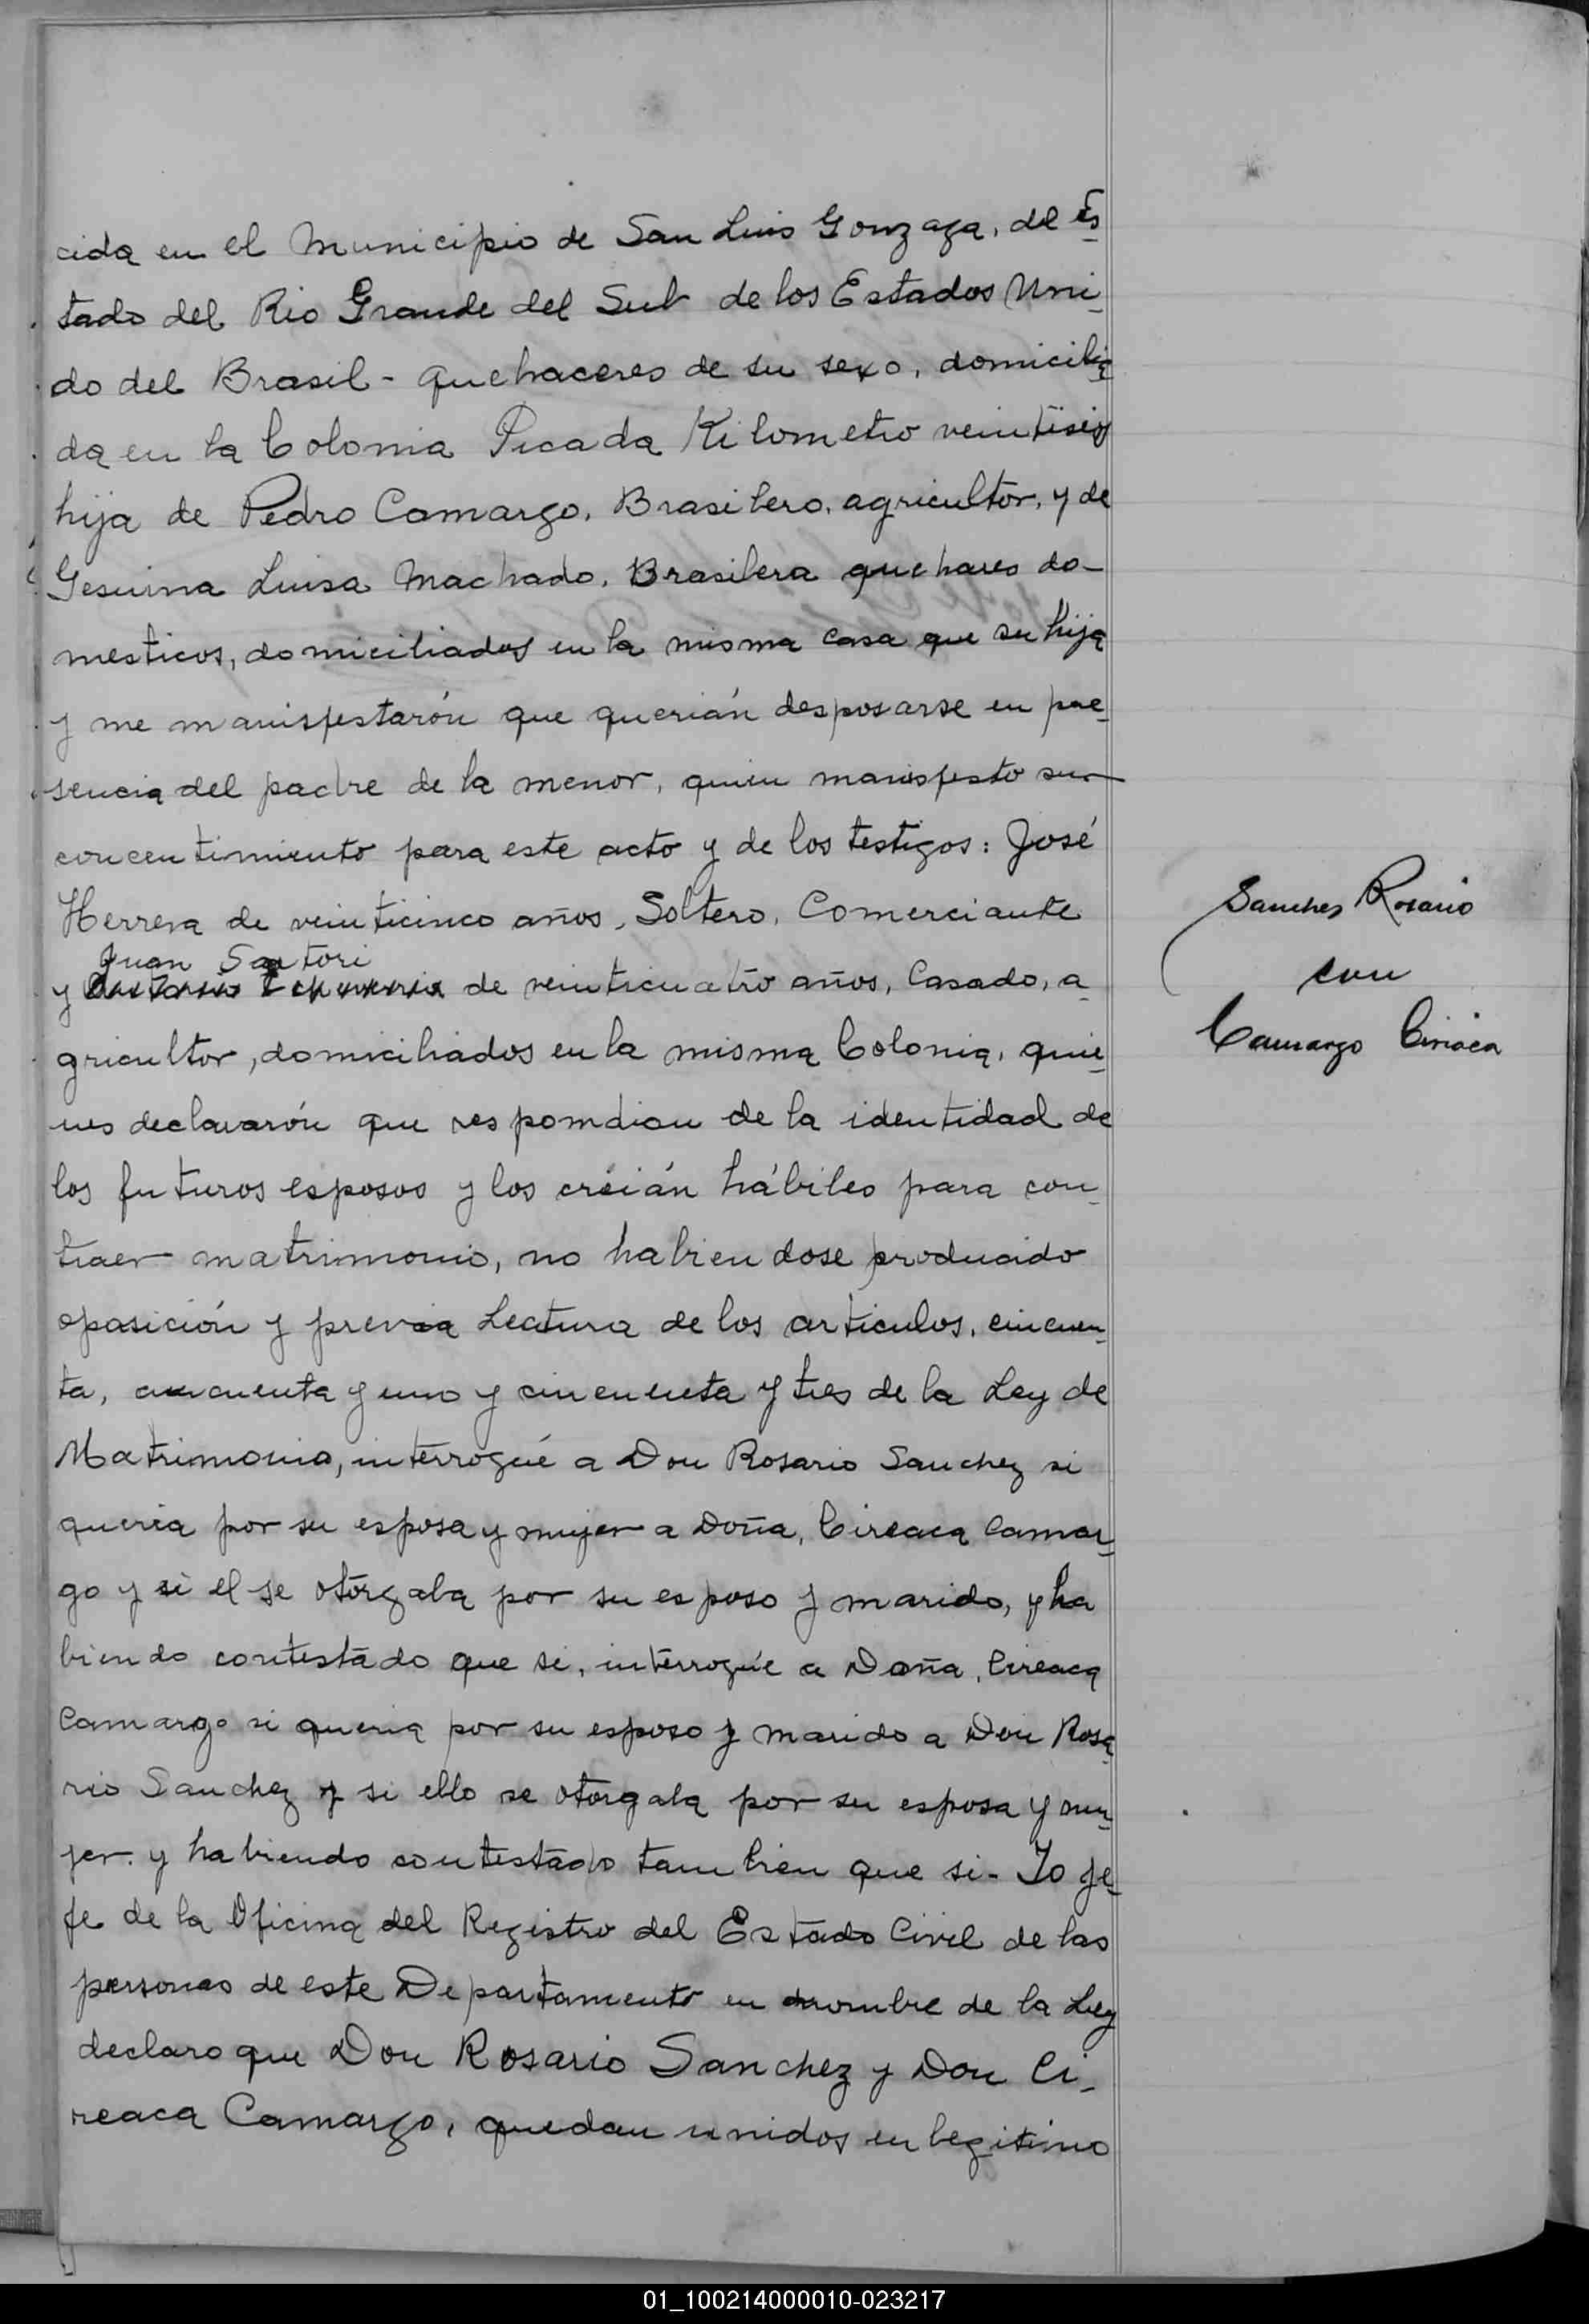 cida en el Municipio de San Luis Gonzaga, del Es
tado del Rio Grande del Sub de los Estados Uni
do del Brasil - quehaceres de su sexo, domicilia
da en la Colonia Picada Kilometro veintiseis
hija de Pedro Camargo, Brasilero, agricultor, y de
Gesuina Luisa Machado, Brasilera quehares do-
mesticos, domiciliados en la misma casa que su hija
y me manisfestarón que querián desposarse en pre
sencia del padre de la menor, quien manisfesto su
concentimiento para este acto y de los testigos: José
Herrera de veinticinco años, Soltero, Comerciante
Juan Sartori
y de veinticuatro años, Casado, a
gricultor, domiciliados en la misma Colonia, quie
nes declararón que respomdian de la identidad de
los futuros esposos y los creián hábiles para con
traer matrimonio, no habiendose producido
oposición y previa Lectura de los articulos, cincuen
ta, cincuenta y uno y cincuenta y tres de la Ley de
Matrimonio, interrogué a Don Rosario Sanchez si
queria por su esposa y mujer a Doña, Cireaca Camar
go y si el se otorgaba por su esposo y marido, y ha
biendo contestado que si, interrogúe a Doña, Cireaca
Camargo si queria por su esposo y marido a Don Rosa
rio Sanchez y si ello se otorgaba por su esposa y mu
jer. y habiendo contestado tambien que si- Yo Je
fe de la Oficina del Registro del Estado Civil de las
personas de este Departamento en nombre de la Ley
declaro que Don Rosario Sanchez y Don Ci-
reaca Camargo, quedan unidos en legitimo
Sanches Rosario
con
Camargo Ciriaca
01_100214000010-023217